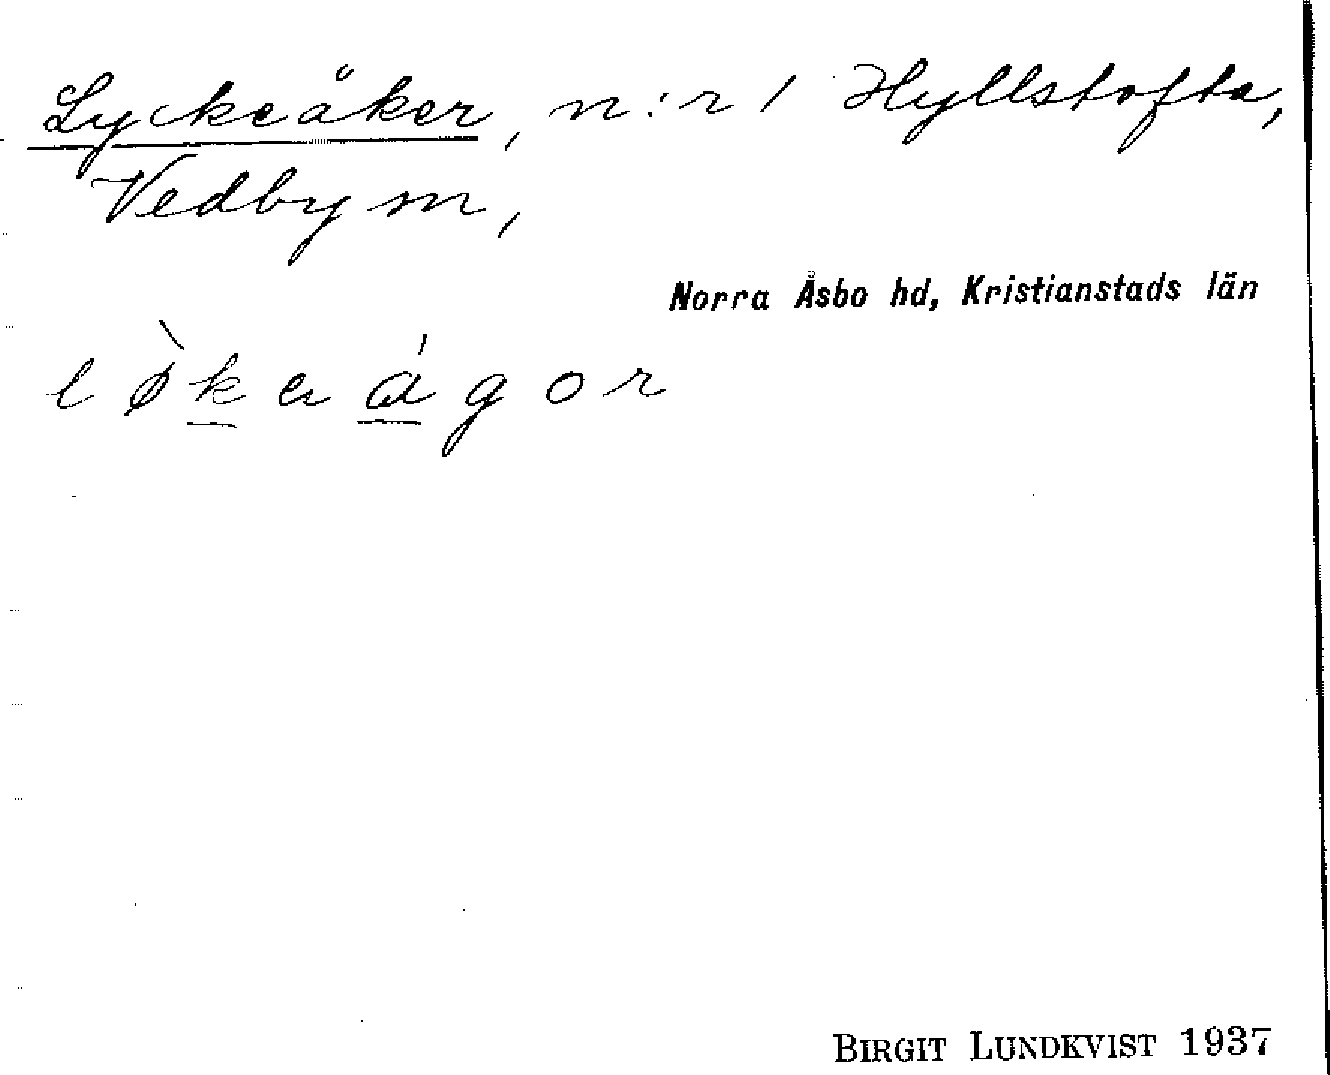 Lyckeåker, n:r 1 Hyllstofta,
Vedby sn,
Norra Åsbo hd, Kristianstads län
BIRGIT LUNDKVIST 1937